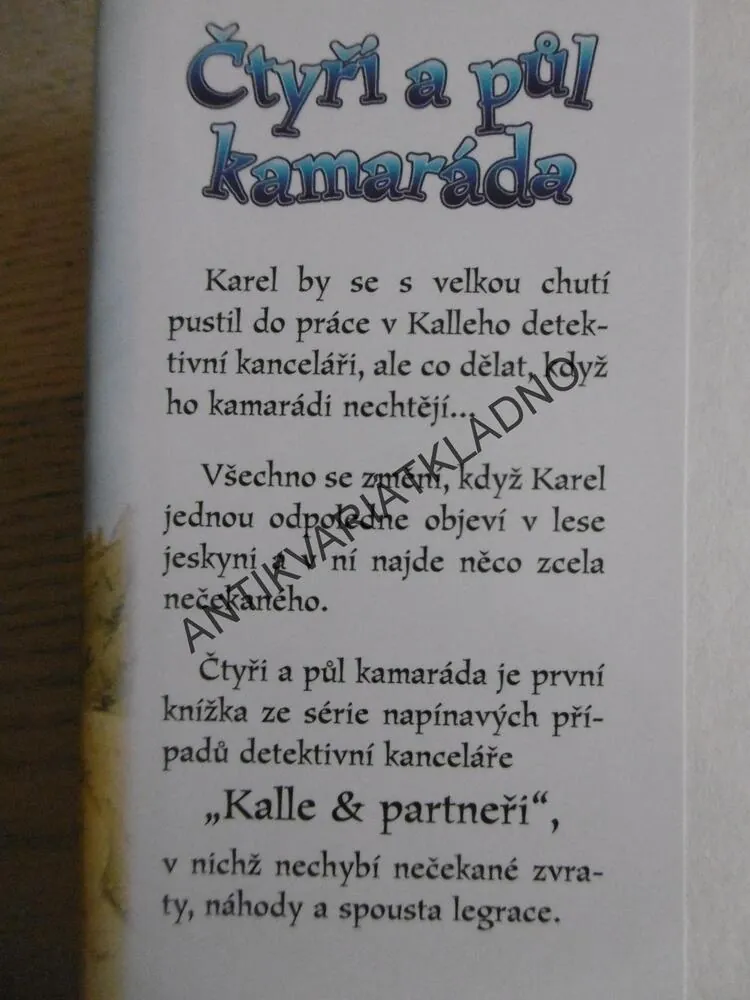 Čtyři a půl
kamaráda
Karel by se s velkou chutí
pustil do práce v Kalleho detek-
tivní kanceláři, ale co dělat, když
ho kamarádi nechtějí...
Všechno se změní, když Karel
jednou odpoledne objeví v lese
jeskyni a v ní najde něco zcela
nečekaného.
Čtyři a půl kamaráda je první
knížka ze série napínavých pří-
padů detektivní kanceláře
„Kalle & partneři“,
v nichž nechybí nečekané zvra-
ty, náhody a spousta legrace.
ANTIKVARIATKLADNO